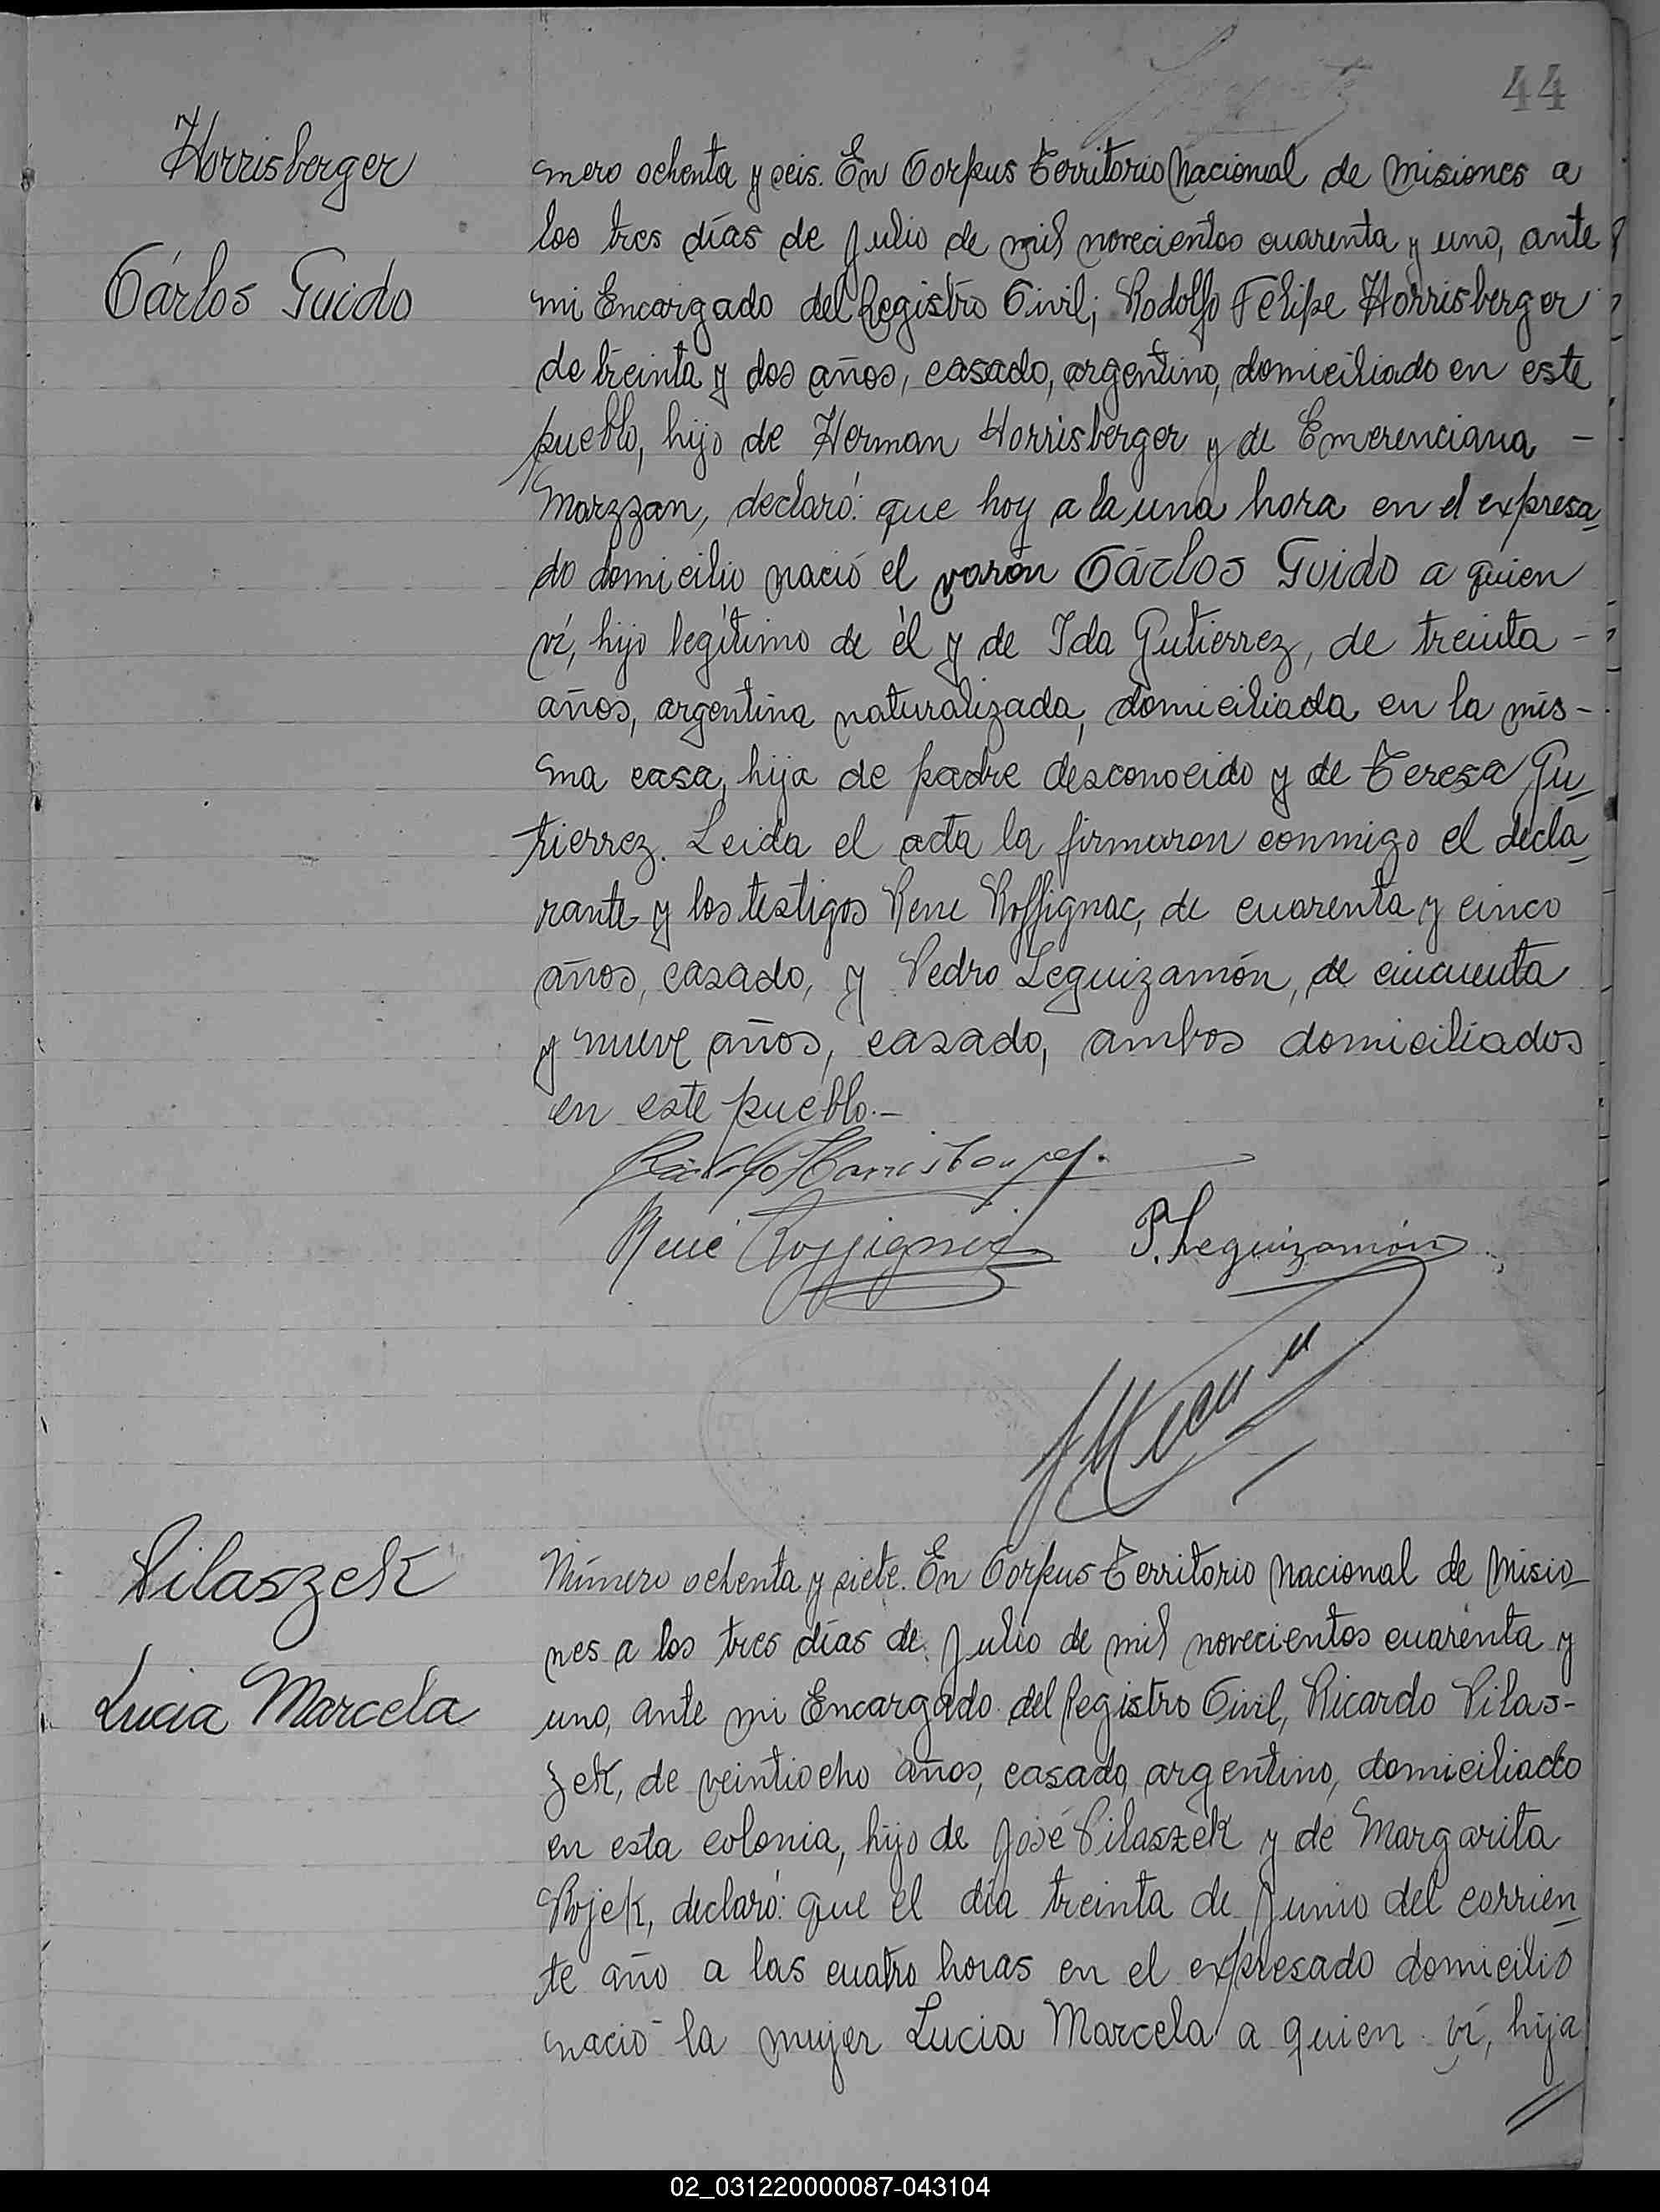 44
Horrisberger
Cárlos Guido
mero ochenta y seis. En Corpus Territorio Nacional de Misiones a
los tres días de Julio de mil novecientos cuarenta y uno, ante
mi Encargado del Registro Civil; Rodolfo Felipe Horrisberger
de treinta y dos años, casado, argentino, domiciliado en este
pueblo, hijo de Herman Horrisberger y de Emerenciana -
Marzzan, declaró: que hoy a la una hora en el expresa_
do domicilio nació el varón Cárlos Guido a quien
ví, hijo legítimo de él y de Ida Gutierrez, de treinta -
años, argentina naturalizada, domiciliada en la mis-
ma casa, hija de padre desconocido y de Teresa Gu_
tierrez. Leida el acta la firmaron conmigo el decla_
rante y los testigos Rene Roffignac, de cuarenta y cinco
años, casado, y Pedro Leguizamón, de cincuenta
y nueve años, casado, ambos domiciliados
en este pueblo.-
Rodolfo Horrisberger.
René Roffignac P. Leguizamón
Pilaszek
Lucia Marcela
Número ochenta y siete. En Corpus Territorio Nacional de Misio_
nes a los tres días de Julio de mil novecientos cuarenta y
uno, ante mi Encargado del Registro Civil, Ricardo Pilas-
zek, de veintiocho años, casado, argentino, domiciliado
en esta colonia, hijo de José Pilaszek y de Margarita
Rojek, declaró: que el día treinta de Junio del corrien_
te año a las cuatro horas en el expresado domicilio
nació la mujer Lucia Marcela a quien ví, hija
02_031220000087-043104